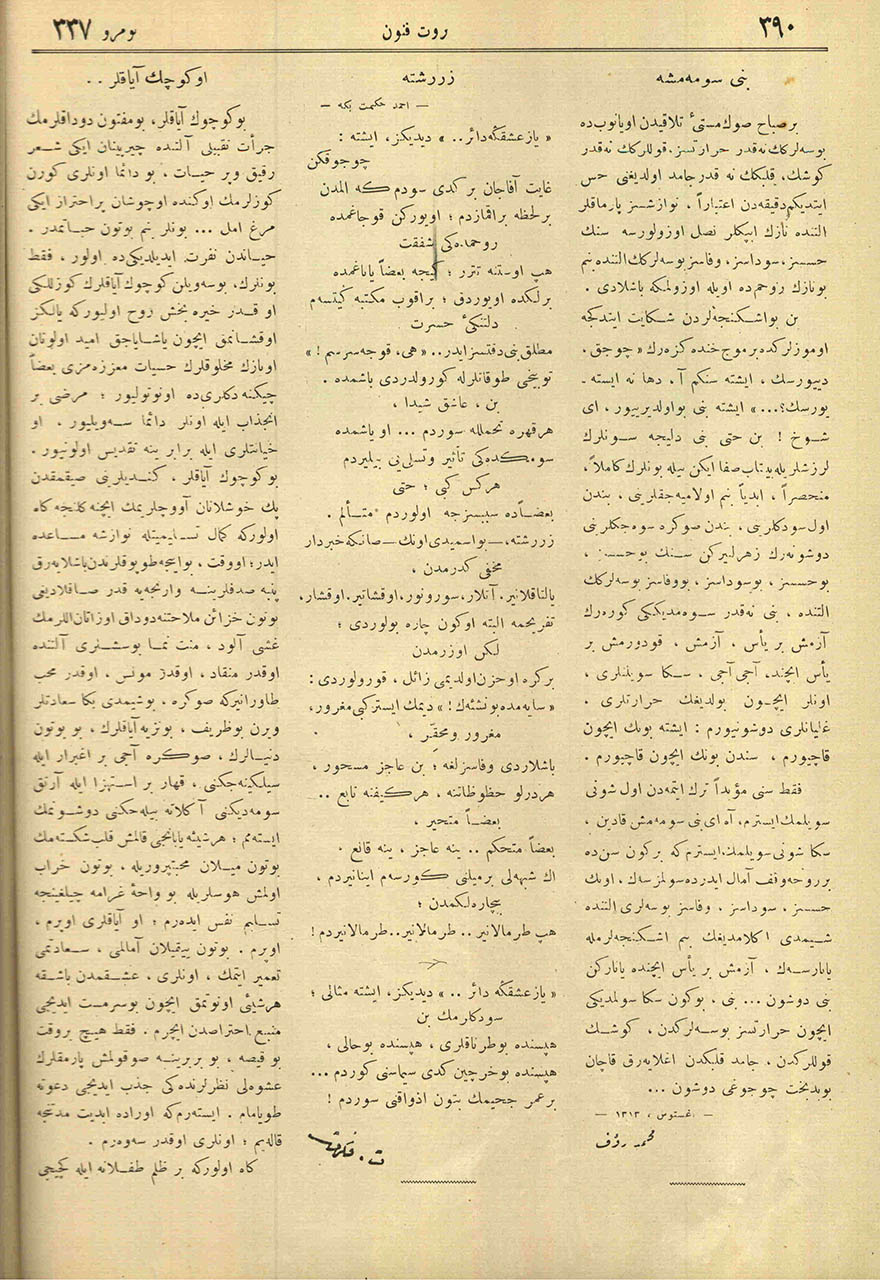 ٣٩٠
ثروت فنون
نومرو ٣٣٧
بنى سومه‌مشه
بر صباح صوك مستئ تلاقيدن اويانوب ده
بوسه‌لرك نه قدر حرارتسز، قوللرك نه قدر
كوشك، قلبكك نه قدر جامد اولديغنى حس
ايتديكم دقيقه‌دن اعتباراً، نوازشسز پارماقلر
التنده نازك ايپكلر نصل اوزولورسه سنك
حسسز، سوداسز، وفاسز بوسه‌لرك التنده بنم
بو نازك روحم ده اويله اوزولمكه باشلادى .
بن بو اشكنجه‌لردن شكايت ايتدكجه
اوموزلركده بر موج خنده كزه‌رك « چوجق،
دييورسك ، ايشته سنكم آ ، دها نه ايسته -
يورسك؟... » ايشته بنى بو اولديرييور ، اى
شوخ ! بن حتى بنى دليجه سونلرك
لرزشلريله بيتاب صفا ايكن بيله بونلرك كاملاً،
منحصراً ، ابدياً بنم اولاميه‌جقلرينى ، بندن
اول سودكلرينى ، بندن صوكره سوه‌جكلرينى
دوشونه‌رك زهرلنيركن سنك بو حسسز ،
بو حسسز ، بو سوداسز ، بو وفاسز بوسه‌لرك
التنده ، بنى نه قدر سوه‌مديككى كوره‌رك
آزمش بر يأس ، آزمش ، قودورمش بر
يأس ايچنده، آجى آجى ، سكا سويلنلرى ،
اونلر ايچون بولديغك حرارتلرى ،
غليانلرى دوشونيورم : ايشته بونك ايچون
قاچيورم ، سندن بونك ايچون قاچيورم .
فقط سنى مؤبداً ترك ايتمه‌دن اول شونى
سويلمك ايسترم، آه اى بنى سومه‌مش قادين ،
سكا شونى سويلمك ايسترم كه بر كون سن ده
بر روحه وقف آمال ايدر ده سولمزسه‌ك ، اونك
حسسز ، سوداسز ، وفاسز بوسه‌لرى التنده
شيمدى اكلامديغك بنم اشكنجه‌لرمله
يانارسه‌ك ، آزمش بر يأس ايچنده يانارك‍ن
بنى دوشون ... بنى ، بوكون سكا سولمديكى
ايچون حرارتسز بوسه‌لركدن ، كوشك
قوللركدن ، جامد قلبكدن اغلايه‌رق قاچان
بو بدبخت چوجوغى دوشون ...
— اغستوس ، ١٣١٣ —
محمد رؤف
زررشته
— احمد حكمت بكه —
« ياز عشقكه دائر .. » ديديكز، ايشته :
چوجوقكن
غايت آفاجان بر كدى سودم كه المدن
بر لحظه براقمازدم ؛ اويوركن قوجاغمده
روحمده‌كى شفقت
هپ اوستنه تترر ؛ كيجه بعضاً ياتاغمده
برلكده اويوردق ؛ براقوب مكتبه كيتسم
دلتنكئ حسرت
مطلق بنى دفتسز ايدر .. « هى، قوجه سرسم ! »
توبيخى طوقانلرله كورولدردى باشمده .
بن ، عاشق شيدا ،
هر قهره تحملله سوردم ... او ياشمده
سومكده‌كى تأثير و تسلى‌يى بيليردم
هركس كبى ؛ حتى
بعضاً ده سببسزجه اولوردم متألم .
زررشته، — بو اسميدى اونك — صانكه خبردار
مخفى كدرمدن ،
يالتاقلانير، آكلار، سورونور، اوقشاتير، اوقشار،
تفريحمه البته اوكون چاره بولوردى ؛
لكن اوزرمدن
بر كره او حزن اولديمى زائل ، قورولوردى :
« سايه‌مده بو نشئه‌ك ! » ديمك ايستر كبى مغرور،
مغرور و محقر ،
باشلاردى وفاسزلغه ؛ بن عاجز مسحور ،
هر درلو حظوظاتنه ، هر كيفنه تابع ..
بعضاً متحير ،
بعضاً متحكم .. ينه عاجز ، ينه قانع ،
اك شبهه‌لى بر ميلنى كورسه‌م اينانيردم ،
بيچاره‌لكمدن ؛
هپ طرمالانير .. طرمالانير.. طرمالانيردم !
« ياز عشقكه دائر .. » ديديكز، ايشته مثالى ؛
سودكارمك بن
هپسنده بو طرناقلرى ، هپسنده بو حالى ،
هپسنده بو خرچين كدى سيماسنى كوردم ...
بر عمر جحيمك بتون اذواقنى سوردم !
ت . فكرت
او كوچك آياقلر ..
بو كوچوك آياقلر، بو مفتون دوداقلرمك
جرأت تقبيلى آلتنده چيرپينان ايكى شعر
رقيق وپر حيات ، بو دائما اونلرى كورن
كوزلرمك اوكنده اوچوشان پر احتراز ايكى
مرغ امل ... بونلر بنم بوتون حياتمدر .
حياتدن نفرت ايديلديكى ده اولور ، فقط
بونلرك، بو سويلن كوچوك آياقلرك كوزللكى
او قدر خيره بخش روح اوليور كه يالكز
اوقشانمق ايچون ياشاياجق اميد اولونان
او نازك مخلوقلرك حسيات معززه‌مزى بعضاً
چيكنه دكلرى ده اونوتوليور ؛ مرضى بر
انجذاب ايله اونلر دائما سه‌ويليور ، او
خيانتلرى ايله برابر ينه تقديس اولونيور .
بو كوچوك آياقلر ، كنديلرينى صيقمقدن
پك خوشلانان آووجلريمك ايچنه كلنجه كاه
اولور كه كمال تسليميتله نوازشه مساعده
ايدر؛ او وقت ، بو ايجه طوپوقلرندن باشلايه‌رق
پنبه صدفلرينه وارنجه‌يه قدر صاقلاديغى
بوتون خزائن ملاحتنه دوداق اوزاتانلرمك
غشى آلود ، منت نما بوسشلرى آلتنده
اوقدر منقاد ، اوقدر مونس ، اوقدر محب
طاورانير كه صوكره ، بو شيمدى بكا سعادتلر
ويرن بو ظريف ، بو نزيه آياقلرك ، بو بوتون
دنيالرك ، صوكره آجى بر اغبرار ايله
سيلكينه‌جكنى ، قهار بر استهزا ايله آرتق
سومه‌ديكنى آكلاته بيله‌جكنى دوشونمك
ايسته‌مم ؛ هر شيئه يابانجى قالمش قلب شكسته‌مك
بوتون ميلان محبتپروريله ، بوتون خراب
اولمش هوسلريله بو واحۀ غرامه چيلغينجه
تسليم نفس ايده‌رم ؛ او آياقلرى اوپرم ،
اوپرم . بوتون ييقيلان آمالمى ، سعادتمى
تعمير ايتمك ، اونلرى ، عشقمدن باشقه
هر شيئى اونوتمق ايچون بو سرمست ايديجى
منبع احتراصدن ايچرم . فقط هيچ بر وقت
بو قيصه ، بو بربرينه صوقولمش پارمقلرك
عشوه‌لى نظرلرنده‌كى جذب ايديجى دعوته
طويامام . ايسته‌رم كه اوراده ابديت مدتجه
قاله‌يم ؛ اونلرى اوقدر سه‌وه‌رم .
كاه اولور كه بر ظلم طفلانه ايله كيجيجى